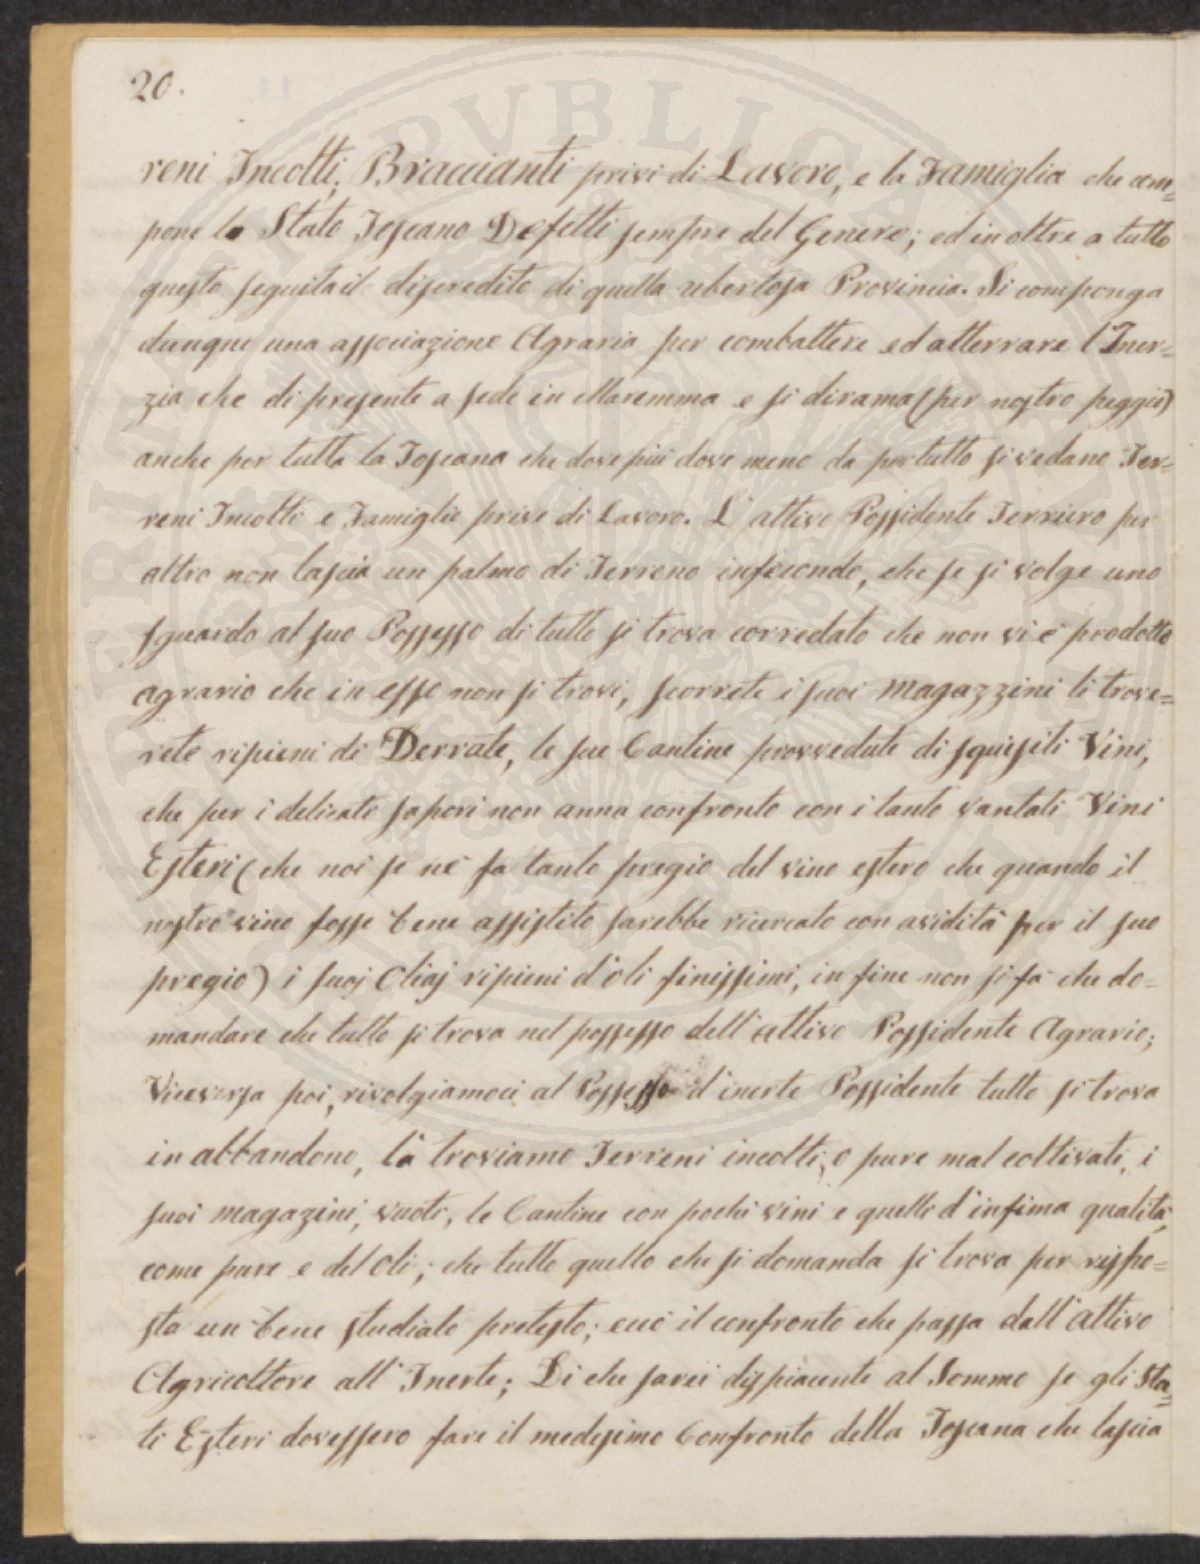 20.
reni Incolti, Braccianti privi di Lavoro, e la Famiglia che com=
pone lo Stato Toscano Defetti sempre del Genere; ed in oltre a tutto
questo seguita il discredito di quella ubertosa Provincia. Si componga
dunque una associazione Agraria per combattere ed atterrare l'Iner=
zia che di presente a sede in Maremma e si dirama (per nostro peggio)
anche per tutta la Toscana che dove più dove meno da per tutto si vedano Ter=
reni Incolti e Famiglie prive di Lavoro. L'attivo Possidente Terriero per
altro non lascia un palmo di Terreno infecondo, che se si volge uno
sguardo al suo Possesso di tutto si trova corredato che non vi è prodotto
agrario che in esso non si trovi, scorrete i suoi magazzini li trove=
rete ripieni di Derrate, le sue Cantine provvedute di squisiti Vini,
che per i delicati sapori non anno confronto con i tanto vantati Vini
Esteri (che noi se nè fa tanto pregio del vino estero che quando il
nostro vino fosse bene assistito sarebbe ricercato con avidità per il suo
pregio) i suoj Oliaj ripieni d'oli finissimi, in fine non si fà che do=
mandare che tutto si trova nel possesso dell'attivo Possidente Agrario;
Viceversa poi, rivolgiamoci al Possesso d'inerte Possidente tutto si trova
in abbandono, là troviamo Terreni incolti, o pure mal coltivati, i
suoi magazini, vuoti, le Cantine con pochi vini e quelli d'infima qualità,
come pure e del Oli; che tutto quello che si domanda si trova per rispo=
sta un bene studiato pretesto; ecco il confronto che passa dall'attivo
Agricoltore all'Inerte; Di che sarei dispiacente al Sommo se gli Sta=
ti Esteri dovessero fare il medesimo Confronto della Toscana che lascia